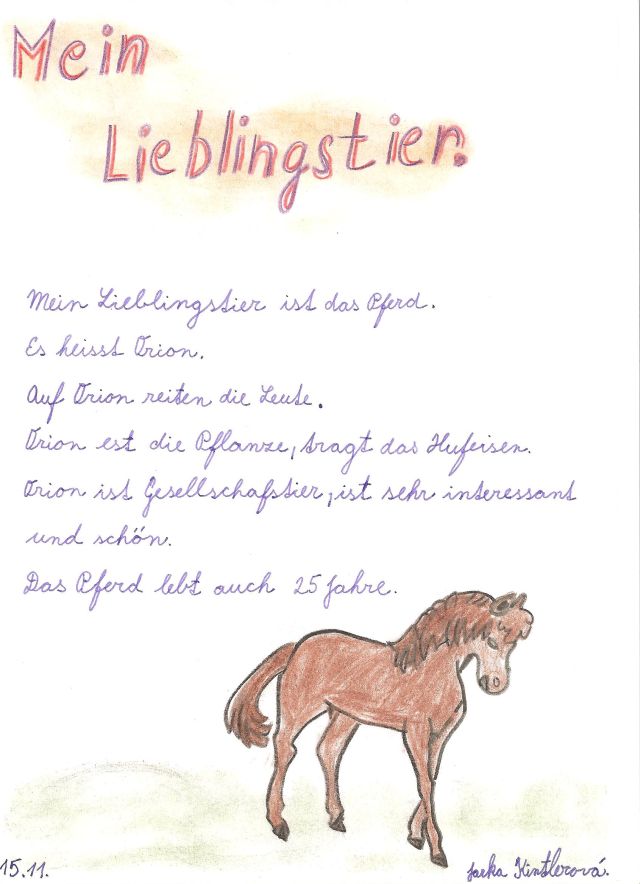 Mein
Lieblingstier.
Mein Lieblingstier ist das Pferd.
Es heisst Orion.
Auf Orion reiten die Leute.
Orion est die Pflanze, tragt das Hufeisen.
Orion ist Gesellschafstier, ist sehr interessant
und schön.
Das Pferd lebt auch 25 Jahre.
15.11.
Jarka Kintlerová.